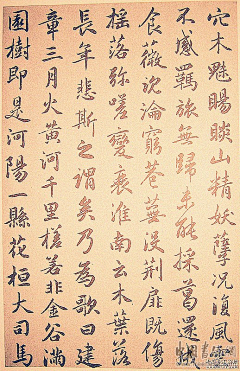 穴木魅睗睒山精妖孽況復風雲
不感羈旅無歸未能採葛還成
食薇沉淪窮巷蕪沒荊扉既傷
搖落彌嗟變衰淮南云木葉落
長年悲斯之謂矣乃為歌曰建
章三月火黃河千里槎若非金谷滿
園樹即是河陽一縣花桓大司馬